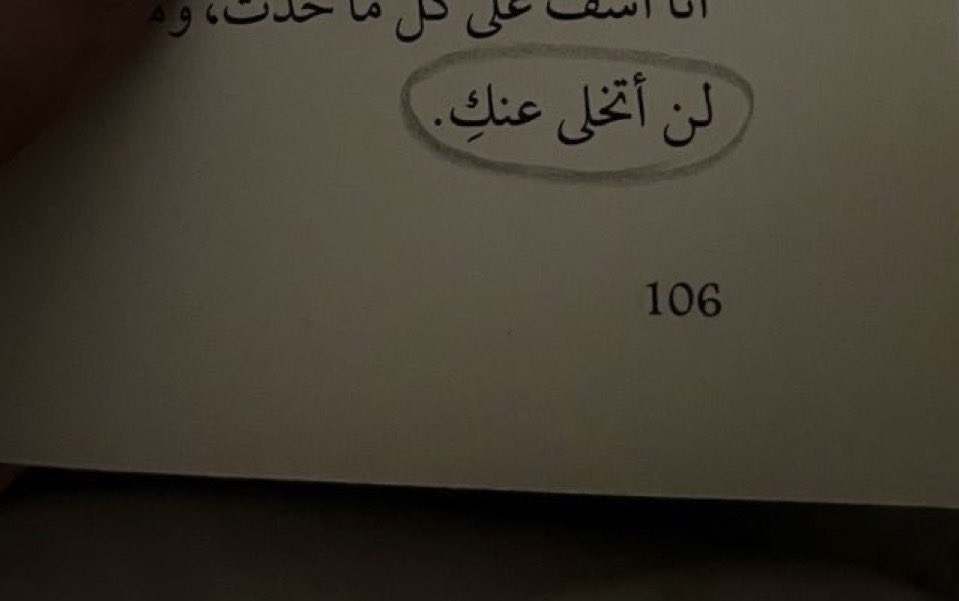 أنا آسف على كل ما حدث، و
لن أتخلى عنكِ.
106